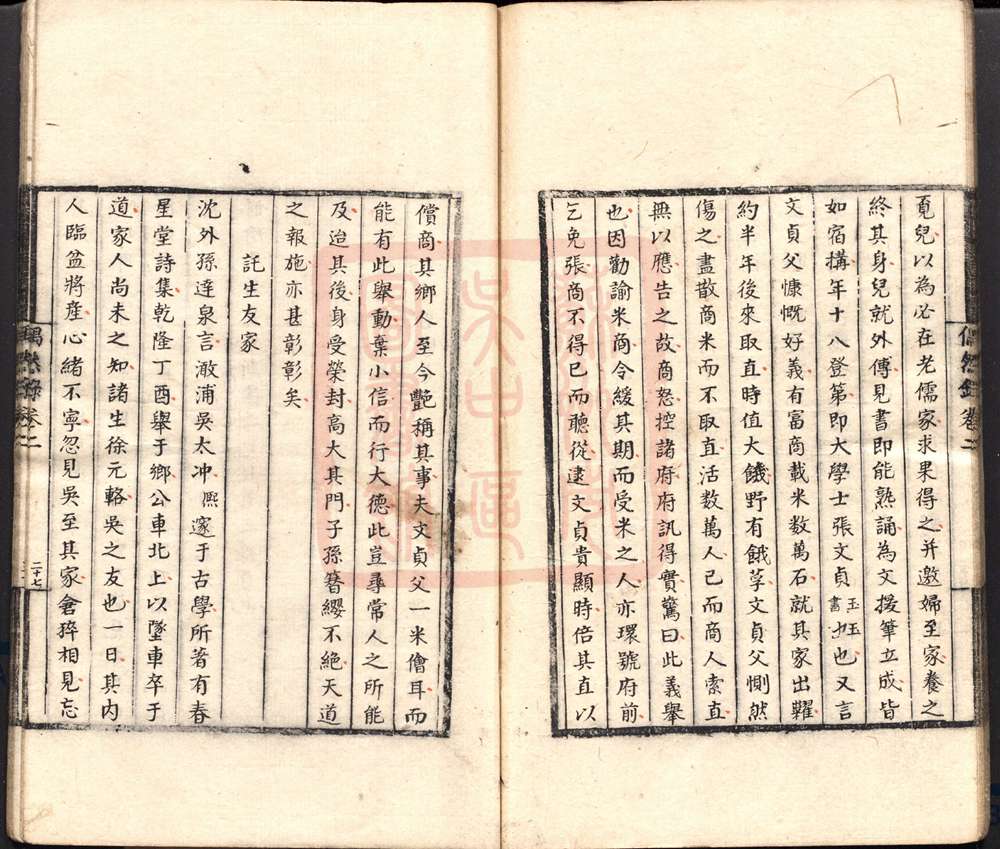 覓兒以為必在老儒家求果得之并邀婦至家養之
終其身兒就外傅見書即能熟誦為文援筆立成皆
如宿搆年十八登第即大學士張文貞玉書也又言
文貞父慷慨好義有富商載米数萬石就其家出糶
約半年後來取直時值大饑野有餓莩文貞父惻然
傷之盡散商米而不取直活数萬人已而商人索直
無以應告之故商怒控諸府府訊得實驚曰此義舉
也因勸諭米商令緩其期而受米之人亦環號府前
乞免張商不得已而聽從逮文貞貴顯時倍其直以
償商其鄉人至今艷稱其事夫文貞父一米儈耳而
能有此舉動棄小信而行大德此豈尋常人之所能
及迨其後身受榮封高大其門子孫簪纓不絶天道
之報施亦甚彰彰矣
託生友家
沈外孫達泉言澉浦吳太冲熙邃于古學所著有春
星堂詩集乾隆丁酉舉于鄉公車北上以墜車卒于
道家人尚未之知諸生徐元輅吳之友也一日其内
人臨盆將産心緒不寧忽見吳至其家倉猝相見忘
偶然錄卷二
二十七